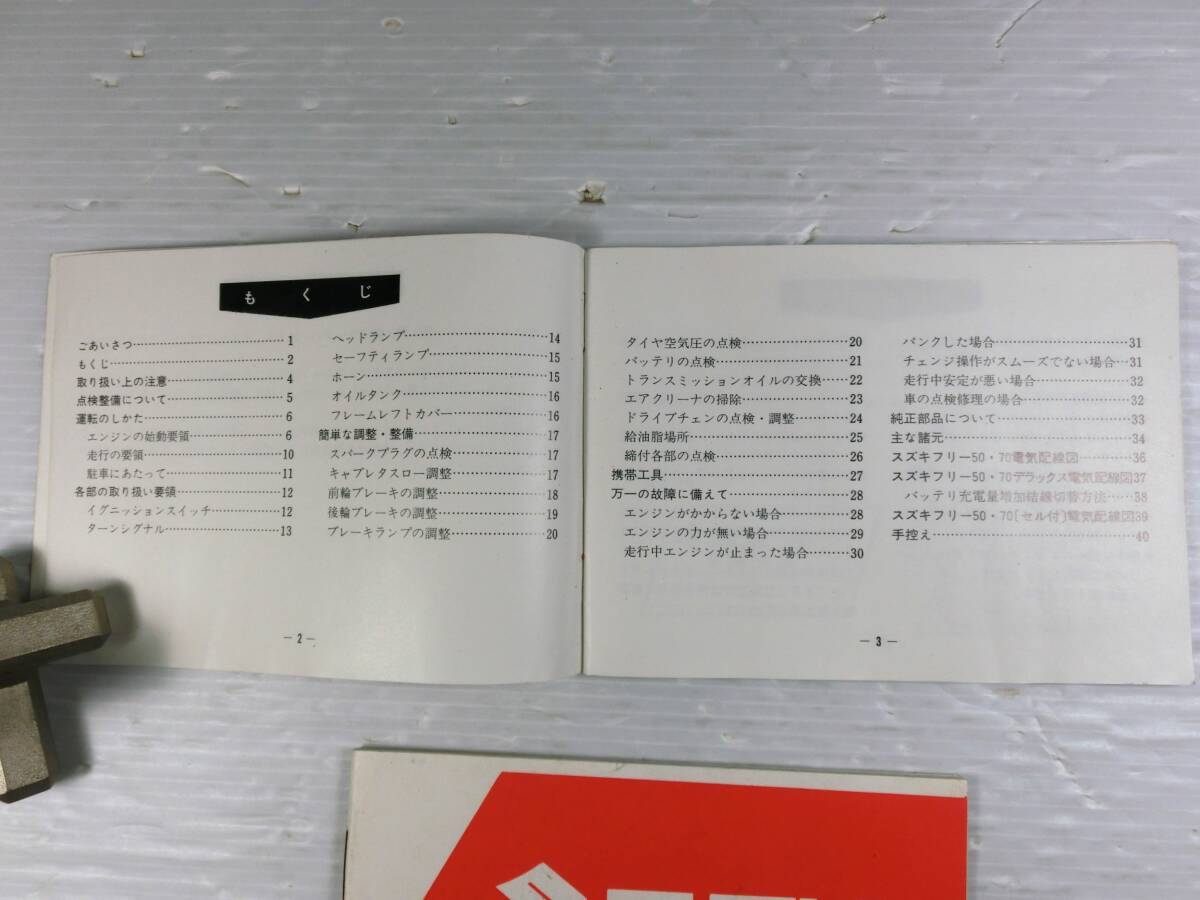 もくじ
ごあいさつ……………………1
もくじ……………………2
取り扱い上の注意……………………4
点検整備について……………………5
運転のしかた……………………6
エンジンの始動要領……………………6
走行の要領……………………10
駐車にあたって……………………11
各部の取り扱い要領……………………12
イグニッションスイッチ……………………12
ターンシグナル……………………13
ヘッドランプ……………………14
セーフティランプ……………………15
ホーン……………………15
オイルタンク……………………16
フレームレフトカバー……………………16
簡単な調整・整備……………………17
スパークプラグの点検……………………17
キャブレタスロー調整……………………17
前輪ブレーキの調整……………………18
後輪ブレーキの調整……………………19
ブレーキランプの調整……………………20
― 2 ―
タイヤ空気圧の点検……………………20
バッテリの点検……………………21
トランスミッションオイルの交換………22
エアクリーナの掃除……………………23
ドライブチェンの点検・調整…………24
給油脂場所……………………25
締付各部の点検……………………26
携帯工具……………………27
万一の故障に備えて……………………28
エンジンがかからない場合……………28
エンジンの力が無い場合………………29
走行中エンジンが止まった場合………30
パンクした場合……………………31
チェンジ操作がスムーズでない場合…31
走行中安定が悪い場合……………………32
車の点検修理の場合……………………32
純正部品について……………………33
主な諸元……………………34
スズキフリー50・70電気配線図…………36
スズキフリー50・70デラックス電気配線図37
バッテリ充電量増加結線切替方法……38
スズキフリー50・70〔セル付〕電気配線図39
手控え……………………40
― 3 ―